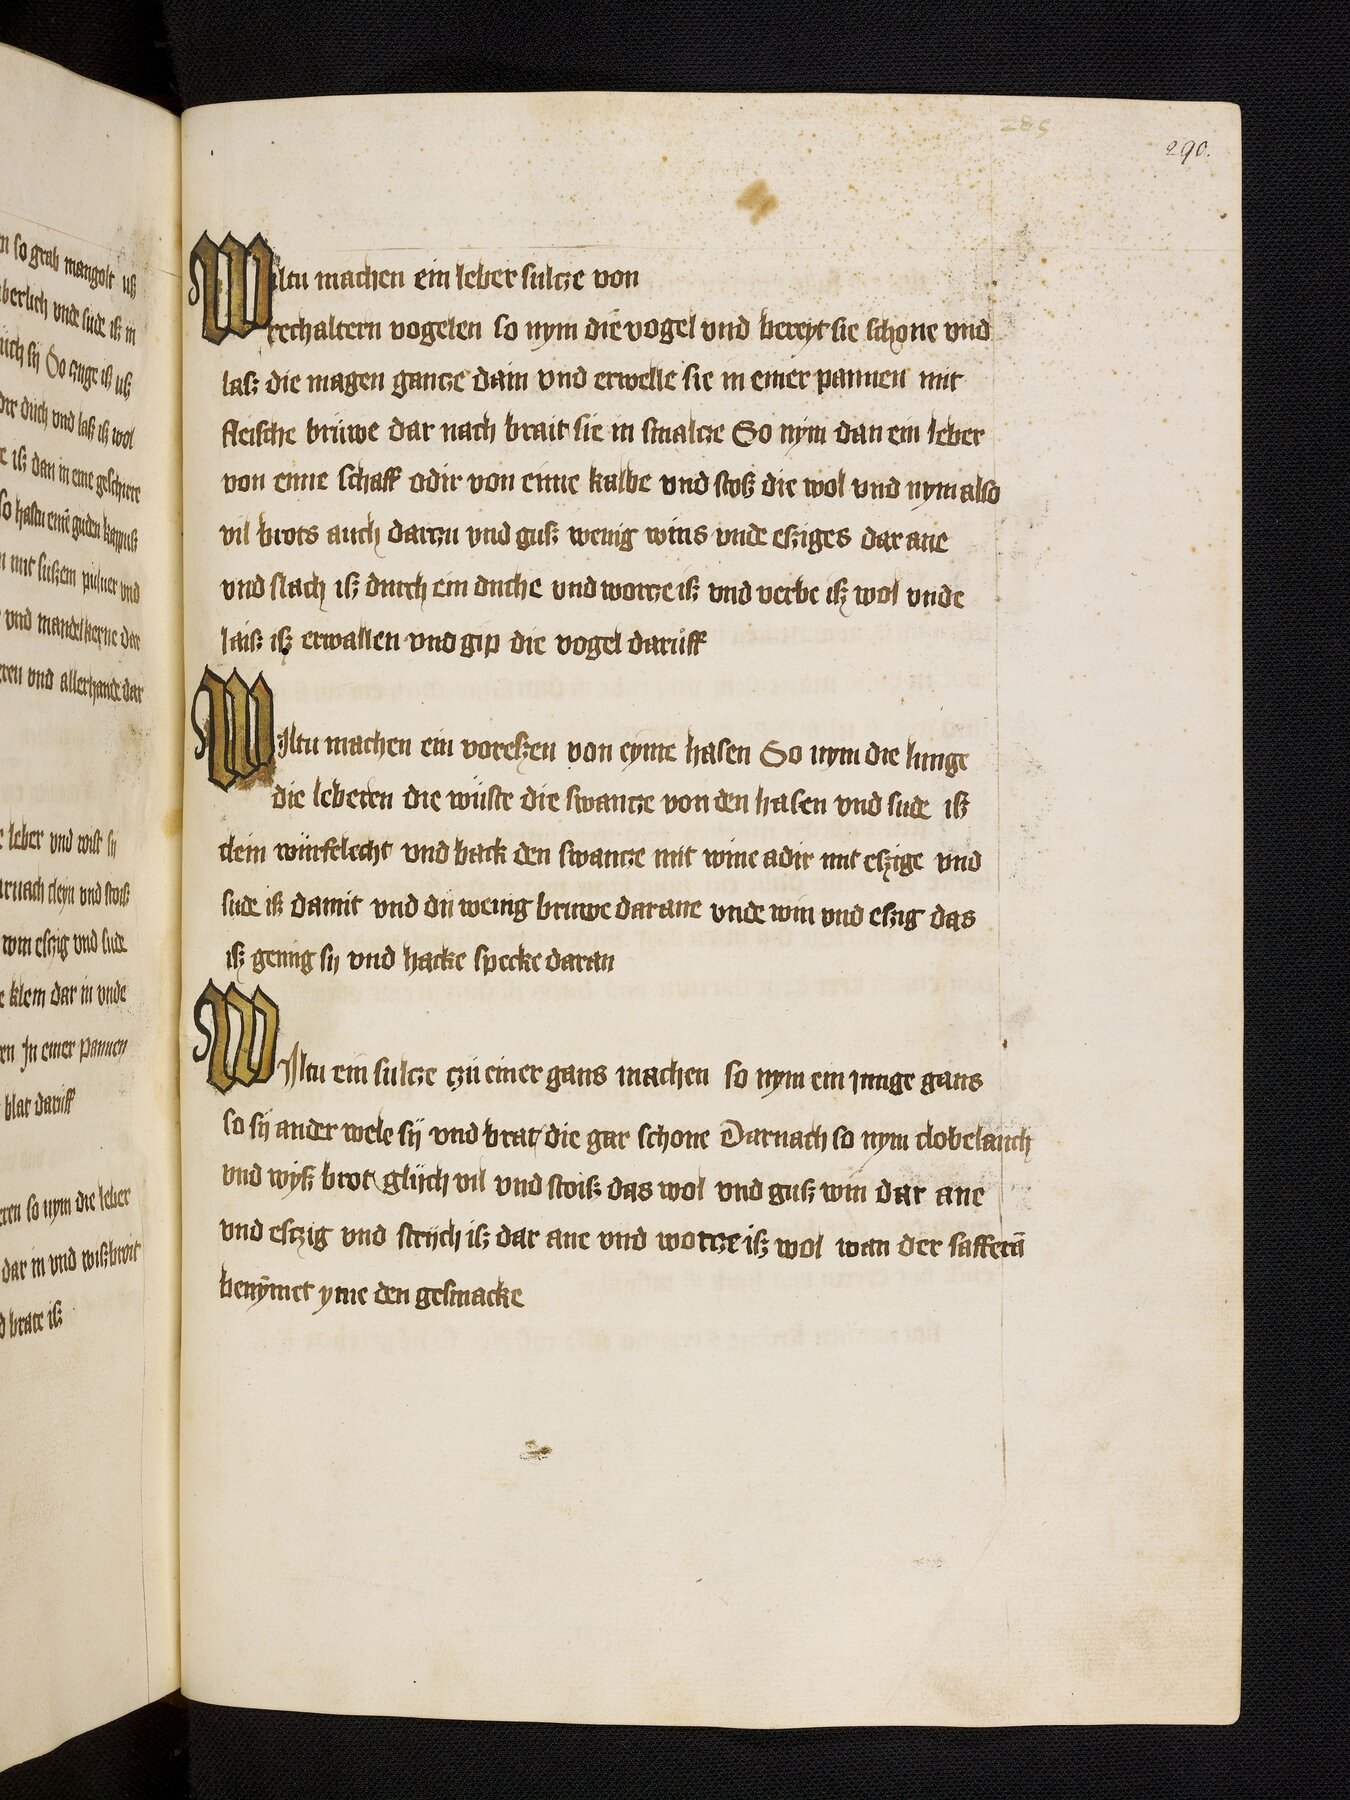 n so grab mangolt uß
berlich vnde sude iß in
So czuge iß uß
der duch vnd laß iß wol
e iß dan in eine geschirre
so hastu einē guden kappuß
n mit sußem puluer vnd
vnd mandelkerne dar
eren vnd allerhande dar
e leber vnd wilt sij
arnach cleyn vnd stois
win eßzig vnd sude
e klein dar in vnde
en In einer pannen
blat daruff
eren so nym die leber
dar in vnd wißbroit
d brate iß
285
290.
Wiltu machen ein leber sulcze von
rechaltern vogelen so nym die vogel vnd bereyt sie schone vnd
laß die magen gancze dain vnd erwelle sie in einer pannen mit
fleische brüwe dar nach brait sie in smalcze So nym dan ein leber
von eime schaff odir von eime kalbe vnd stoß die wol vnd nym also
vil brots auch darczu vnd guß wenig wins vnde eßziges dar ane
vnd slach iß durch ein duche vnd worcze iß vnd verbe iß wol vnde
laiß iß erwallen vnd gip die vogel darüff
Wiltu machen ein voreßzen von eyme hasen So nym die lunge
die leberen die wüste die swancze von den hasen vnd sude iß
clein würfelecht vnd hack den swancze mit wine adir mit eßzige vnd
sude iß damit vnd dü wenig bruwe darane vnde win vnd eßzig das
iß genug sij vnd hacke specke daran
Wiltu ein sulcze czü einer gans machen so nym ein junge gans
so sij ander wele sij vnd brat die gar schone Darnach so nym clobelauch
vnd wyß brot glijch vil vnd stoiß das wol vnd guß win dar ane
vnd eßczig vnd strijch iß dar ane vnd worcze iß wol wan der safferā
benȳmet yme den gesmacke